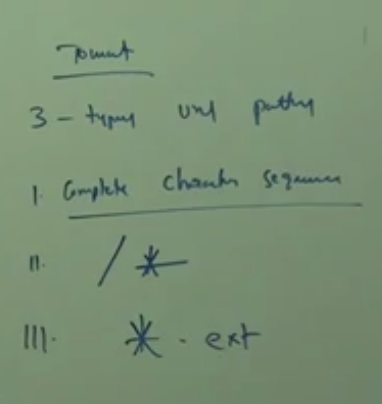 Tomcat
3 - types url pattern
I. Complete character sequence
II. /*
III. *.ext